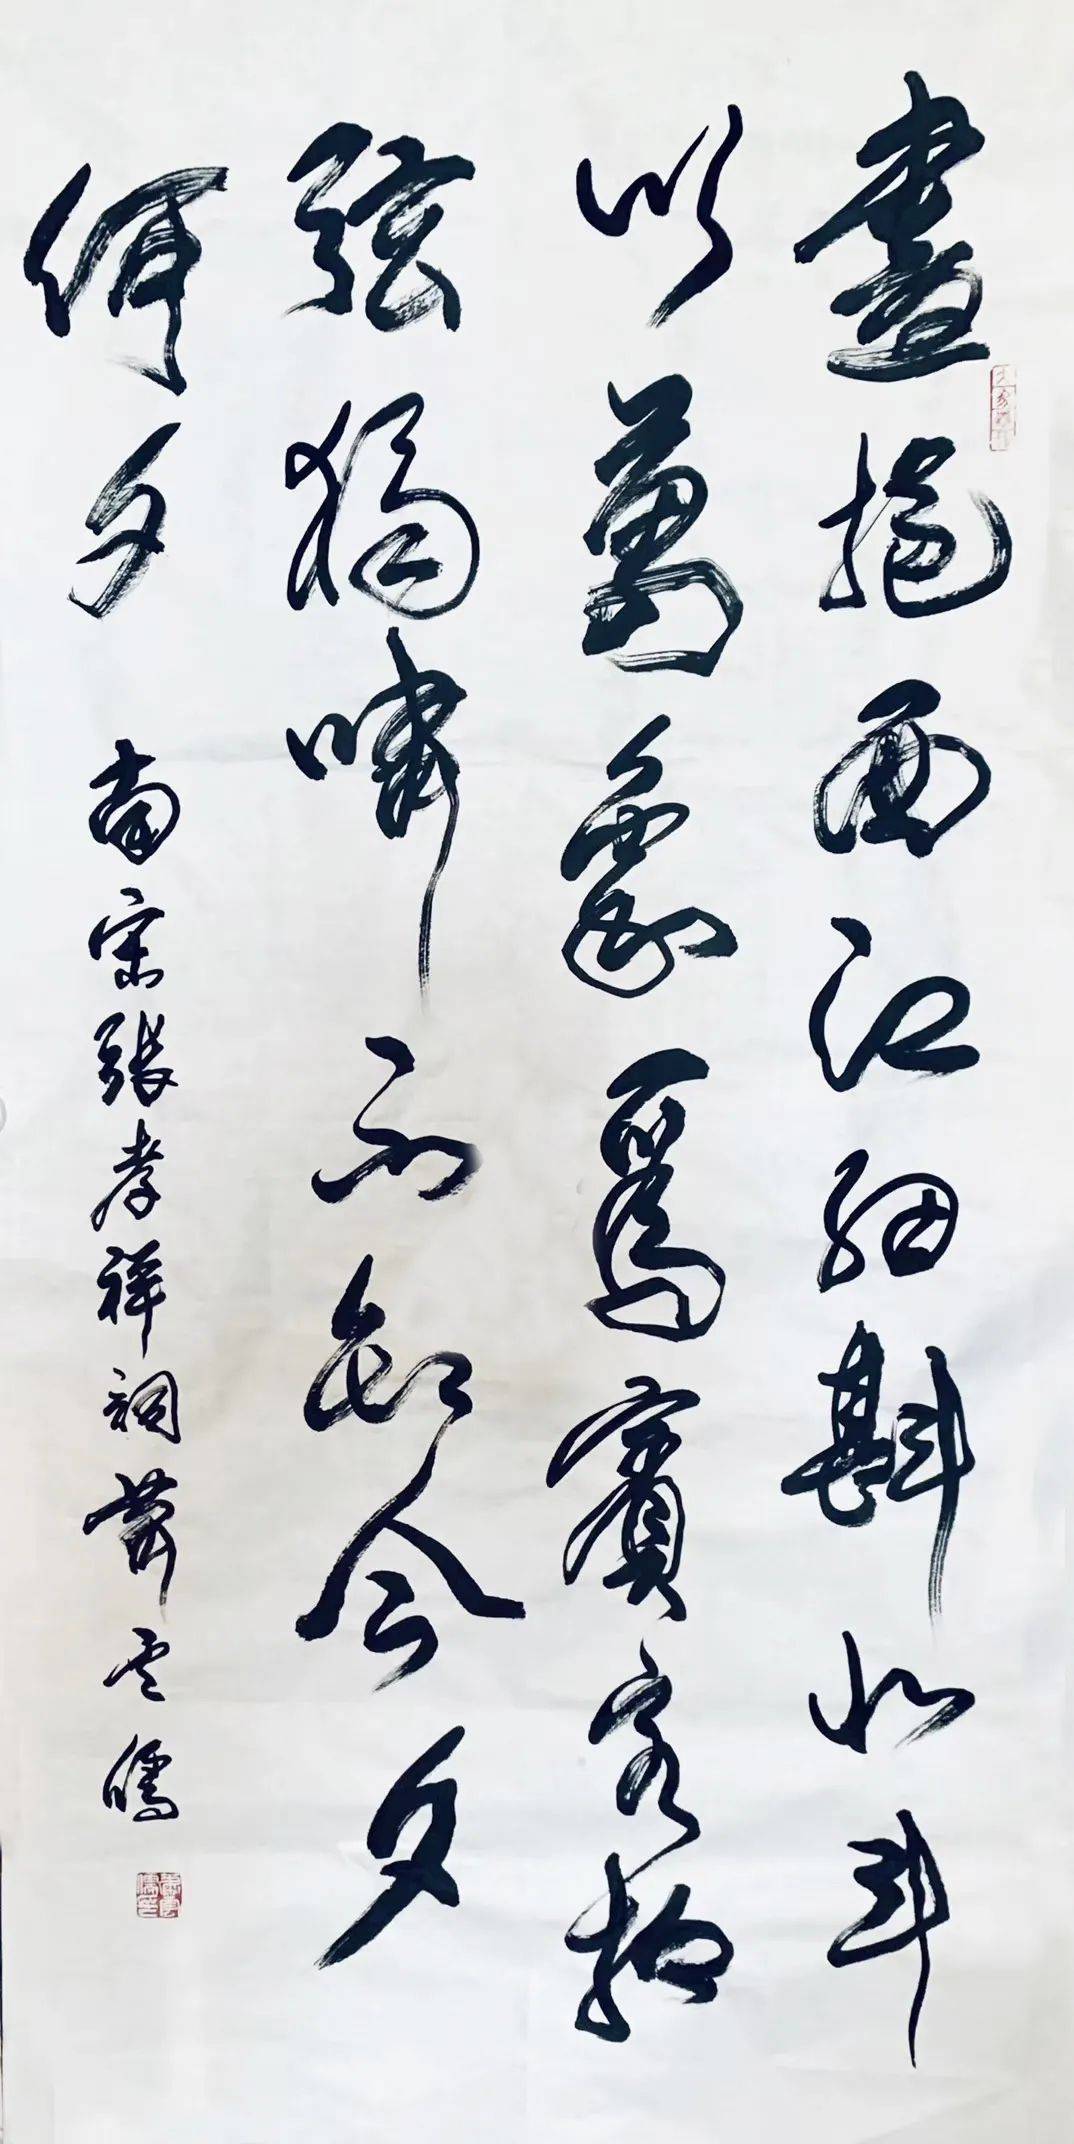 盡挹西江細斟北斗
以萬象為賓客扣
弦獨嘯不知今夕
何夕 南宋張孝祥詞 蕭雲儒